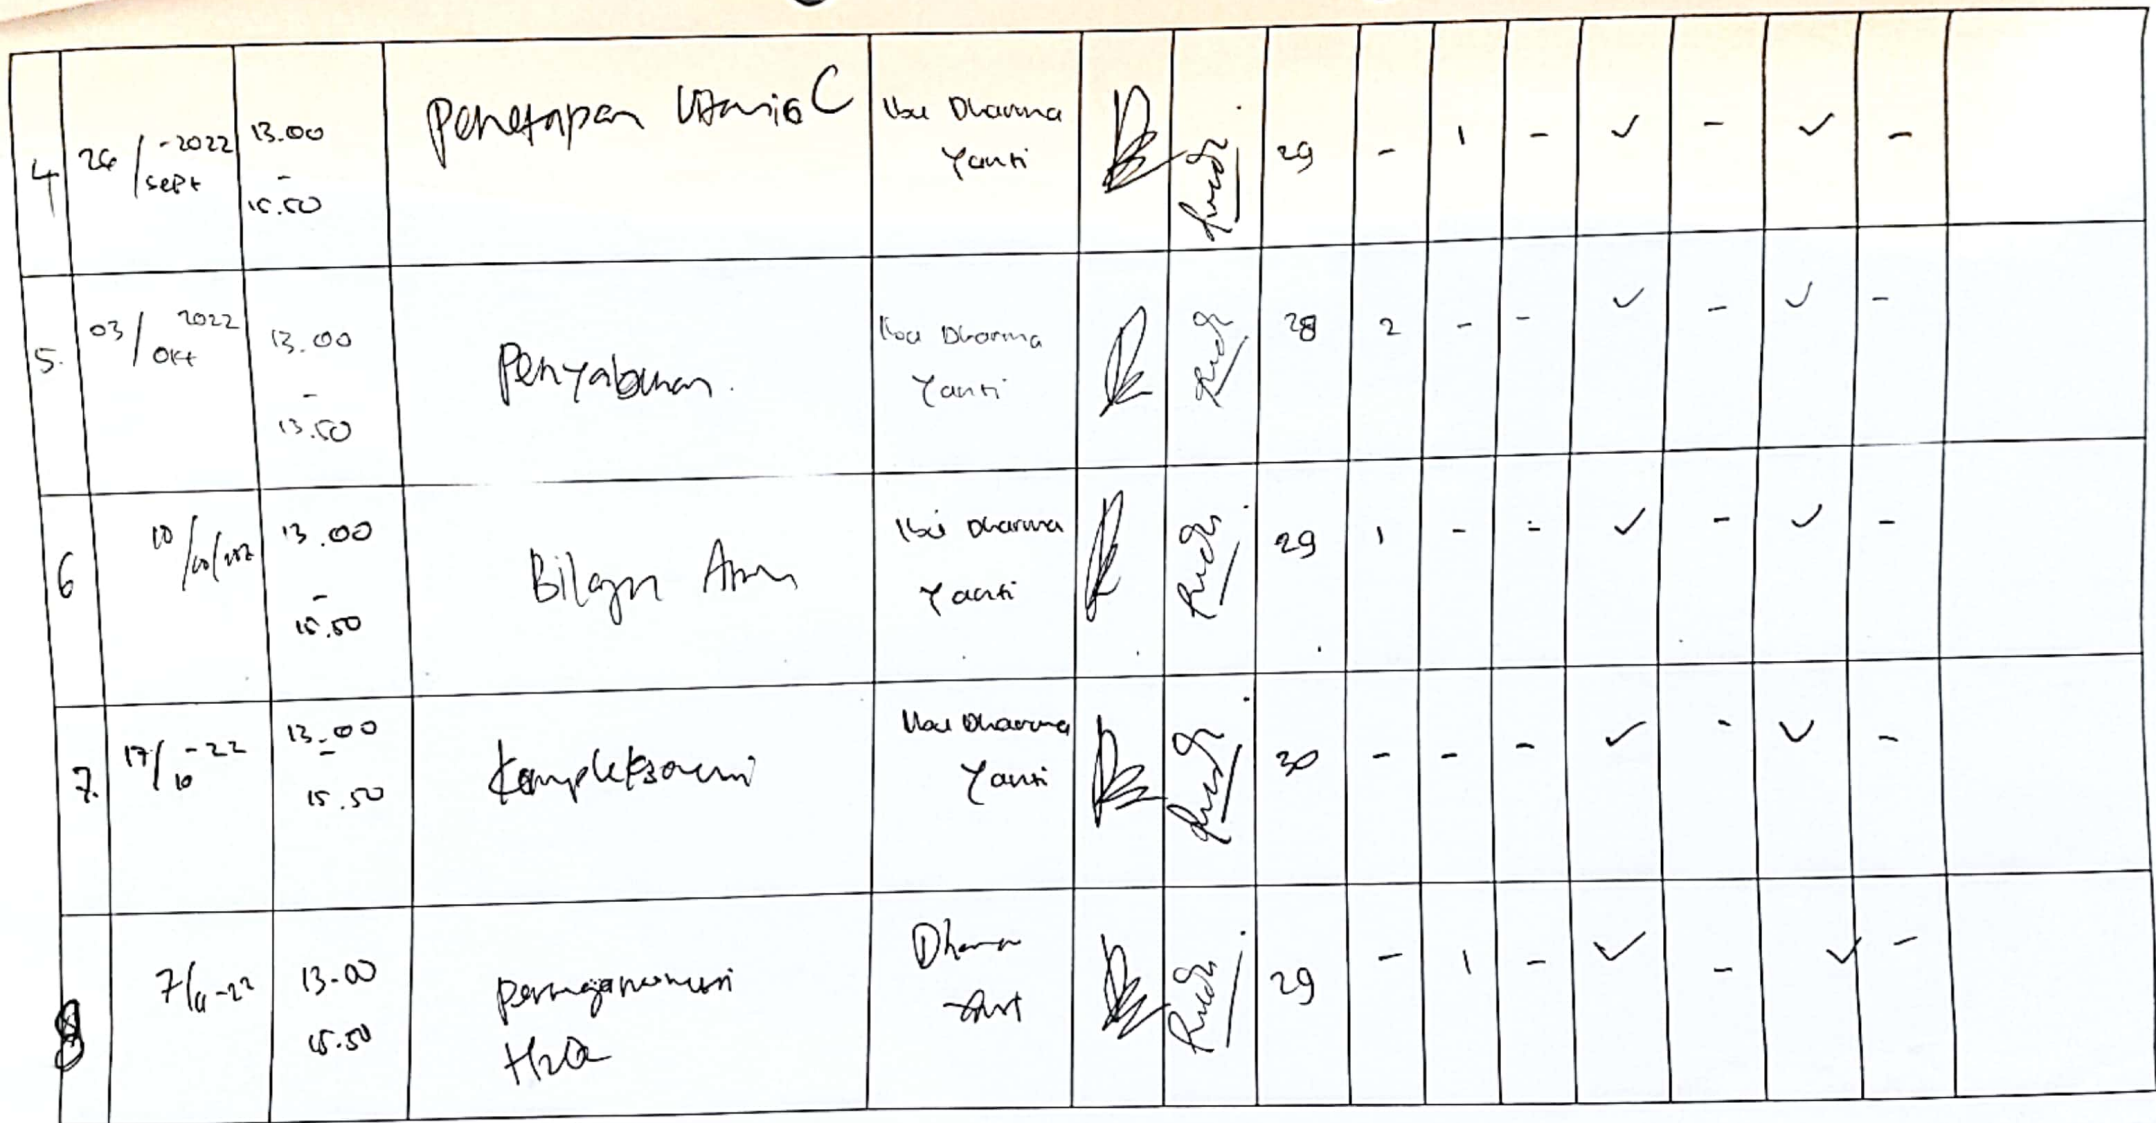 4 26/sept-2022 13.00 - 15.50 Penetapan Vitamin C Ibu Dharma Yanti 29 - 1 - ✓ - ✓ -
5. 03/okt 2022 13.00 - 13.50 Penyabunan. Ibu Dharma Yanti 28 2 - - ✓ - ✓ -
6 10/10/202 13.00 - 15.50 Bilangan Asam Ibu Dharma Yanti 29 1 - - ✓ - ✓ -
7. 17/10-22 13.00 - 15.50 Kompleksometri Ibu Dharma Yanti 30 - - - ✓ - ✓ -
8 7/11-22 13.00 15.50 Permanganometri Dharma Yanti 29 - 1 - ✓ - ✓ -